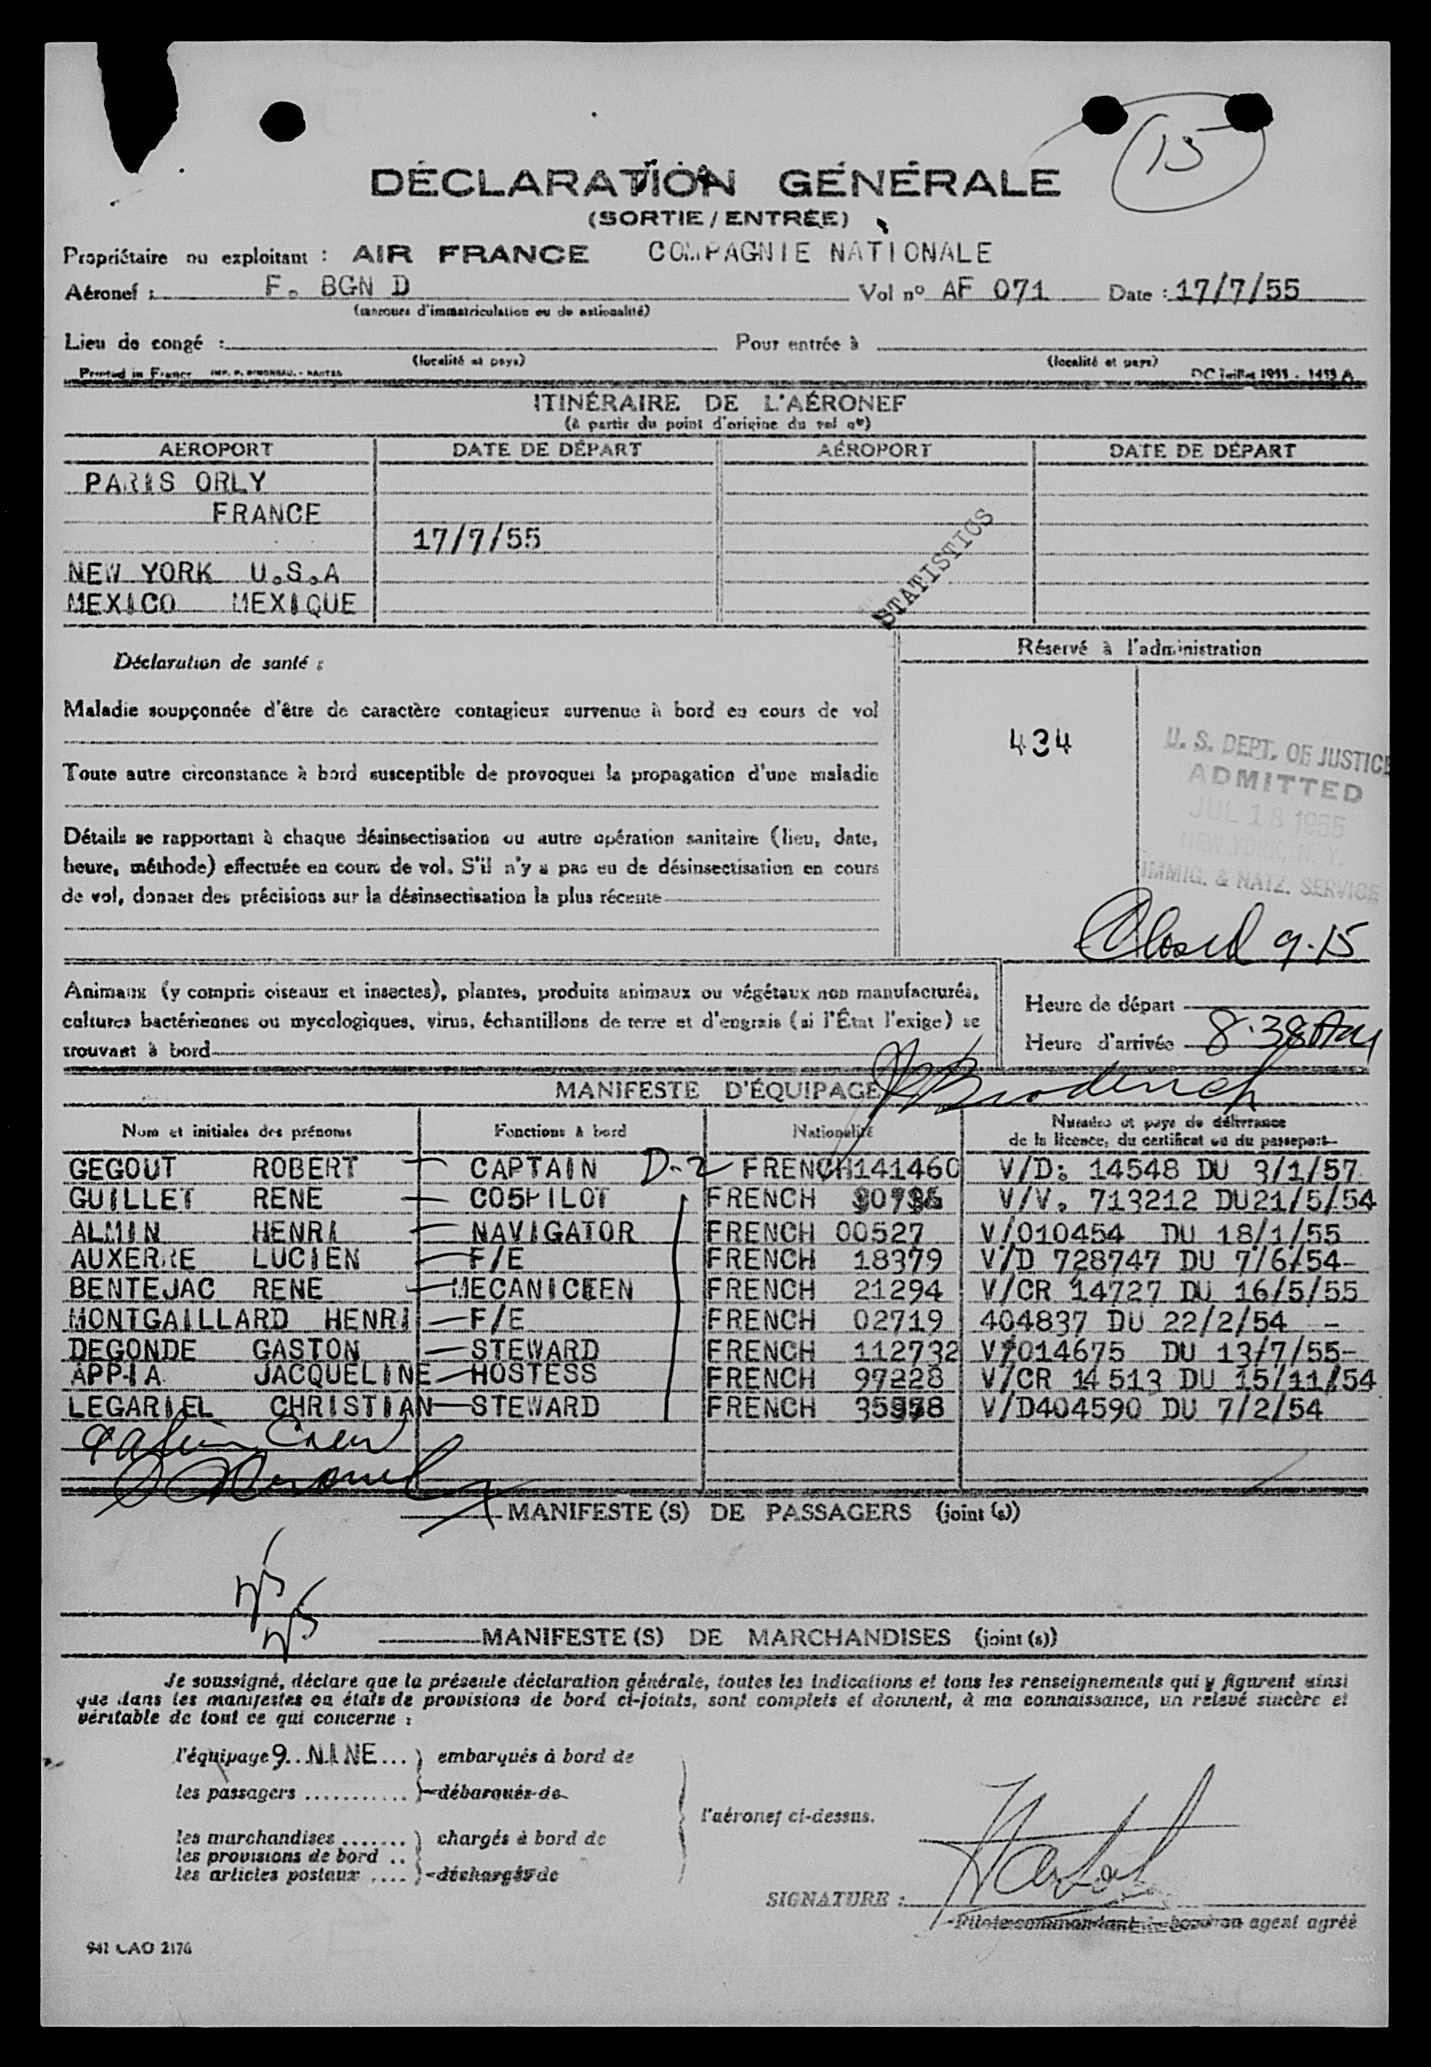 15
DÉCLARATION GÉNÉRALE
(SORTIE / ENTRÉE)
Propriétaire ou exploitant : AIR FRANCE COMPAGNIE NATIONALE
Aéronef : F. BGN D Vol nº AF 071 Date : 17/7/55
(marques d'immatriculation ou de nationalité)
Lieu de congé : Pour entrée à
(localité et pays) (localité et pays)
Printed in France
ITINÉRAIRE DE L'AÉRONEF
(à partir du point d'origine du vol nº)
AÉROPORT DATE DE DÉPART AÉROPORT DATE DE DÉPART
PARIS ORLY
FRANCE
17/7/55
NEW YORK U.S.A
MEXICO MEXIQUE
STATISTICS
Déclaration de santé :
Réservé à l'administration
Maladie soupçonnée d'être de caractère contagieux survenue à bord en cours de vol
434
U. S. DEPT. OF JUSTICE
ADMITTED
JUL 18 1955
NEW YORK, N. Y.
IMMIG. & NATZ. SERVICE
Toute autre circonstance à bord susceptible de provoquer la propagation d'une maladie
Détails se rapportant à chaque désinsectisation ou autre opération sanitaire (lieu, date,
heure, méthode) effectuée en cours de vol. S'il n'y a pas eu de désinsectisation en cours
de vol, donner des précisions sur la désinsectisation la plus récente
Closed 9.15
Animaux (y compris oiseaux et insectes), plantes, produits animaux ou végétaux non manufacturés,
cultures bactériennes ou mycologiques, virus, échantillons de terre et d'engrais (si l'État l'exige) se
trouvant à bord
Heure de départ
Heure d'arrivée 8.38 AM
MANIFESTE D'ÉQUIPAGE
Nom et initiales des prénoms Fonctions à bord Nationalité Numéro et pays de délivrance
de la licence, du certificat ou du passeport
GEGOUT ROBERT — CAPTAIN D-2 FRENCH 141460 V/D: 14548 DU 3/1/57
GUILLET RENE — CO5PILOT FRENCH V/V. 713212 DU21/5/54
ALMIN HENRI — NAVIGATOR FRENCH 00527 V/010454 DU 18/1/55
AUXERRE LUCIEN — F/E FRENCH 18379 V/D 728747 DU 7/6/54-
BENTEJAC RENE — MECANICIEN FRENCH 21294 V/CR 14727 DU 16/5/55
MONTGAILLARD HENRI — F/E FRENCH 02719 404837 DU 22/2/54 -
DEGONDE GASTON — STEWARD FRENCH 112732 V/014675 DU 13/7/55-
APPIA JACQUELINE — HOSTESS FRENCH 97228 V/CR 14 513 DU 15/11/54
LEGARIEL CHRISTIAN — STEWARD FRENCH V/D404590 DU 7/2/54
MANIFESTE(S) DE PASSAGERS (joint (s))
MANIFESTE(S) DE MARCHANDISES (joint (s))
Je soussigné, déclare que la présente déclaration générale, toutes les indications et tous les renseignements qui y figurent ainsi
que dans les manifestes ou états de provisions de bord ci-joints, sont complets et donnent, à ma connaissance, un relevé sincère et
véritable de tout ce qui concerne :
l'équipage 9..NINE... ) embarqués à bord de
les passagers ........... ) débarqués de
l'aéronef ci-dessus.
les marchandises ....... ) chargés à bord de
les provisions de bord ..
les articles postaux .... ) déchargés de
SIGNATURE :
Pilote commandant de bord ou agent agréé
941 CAO 2176